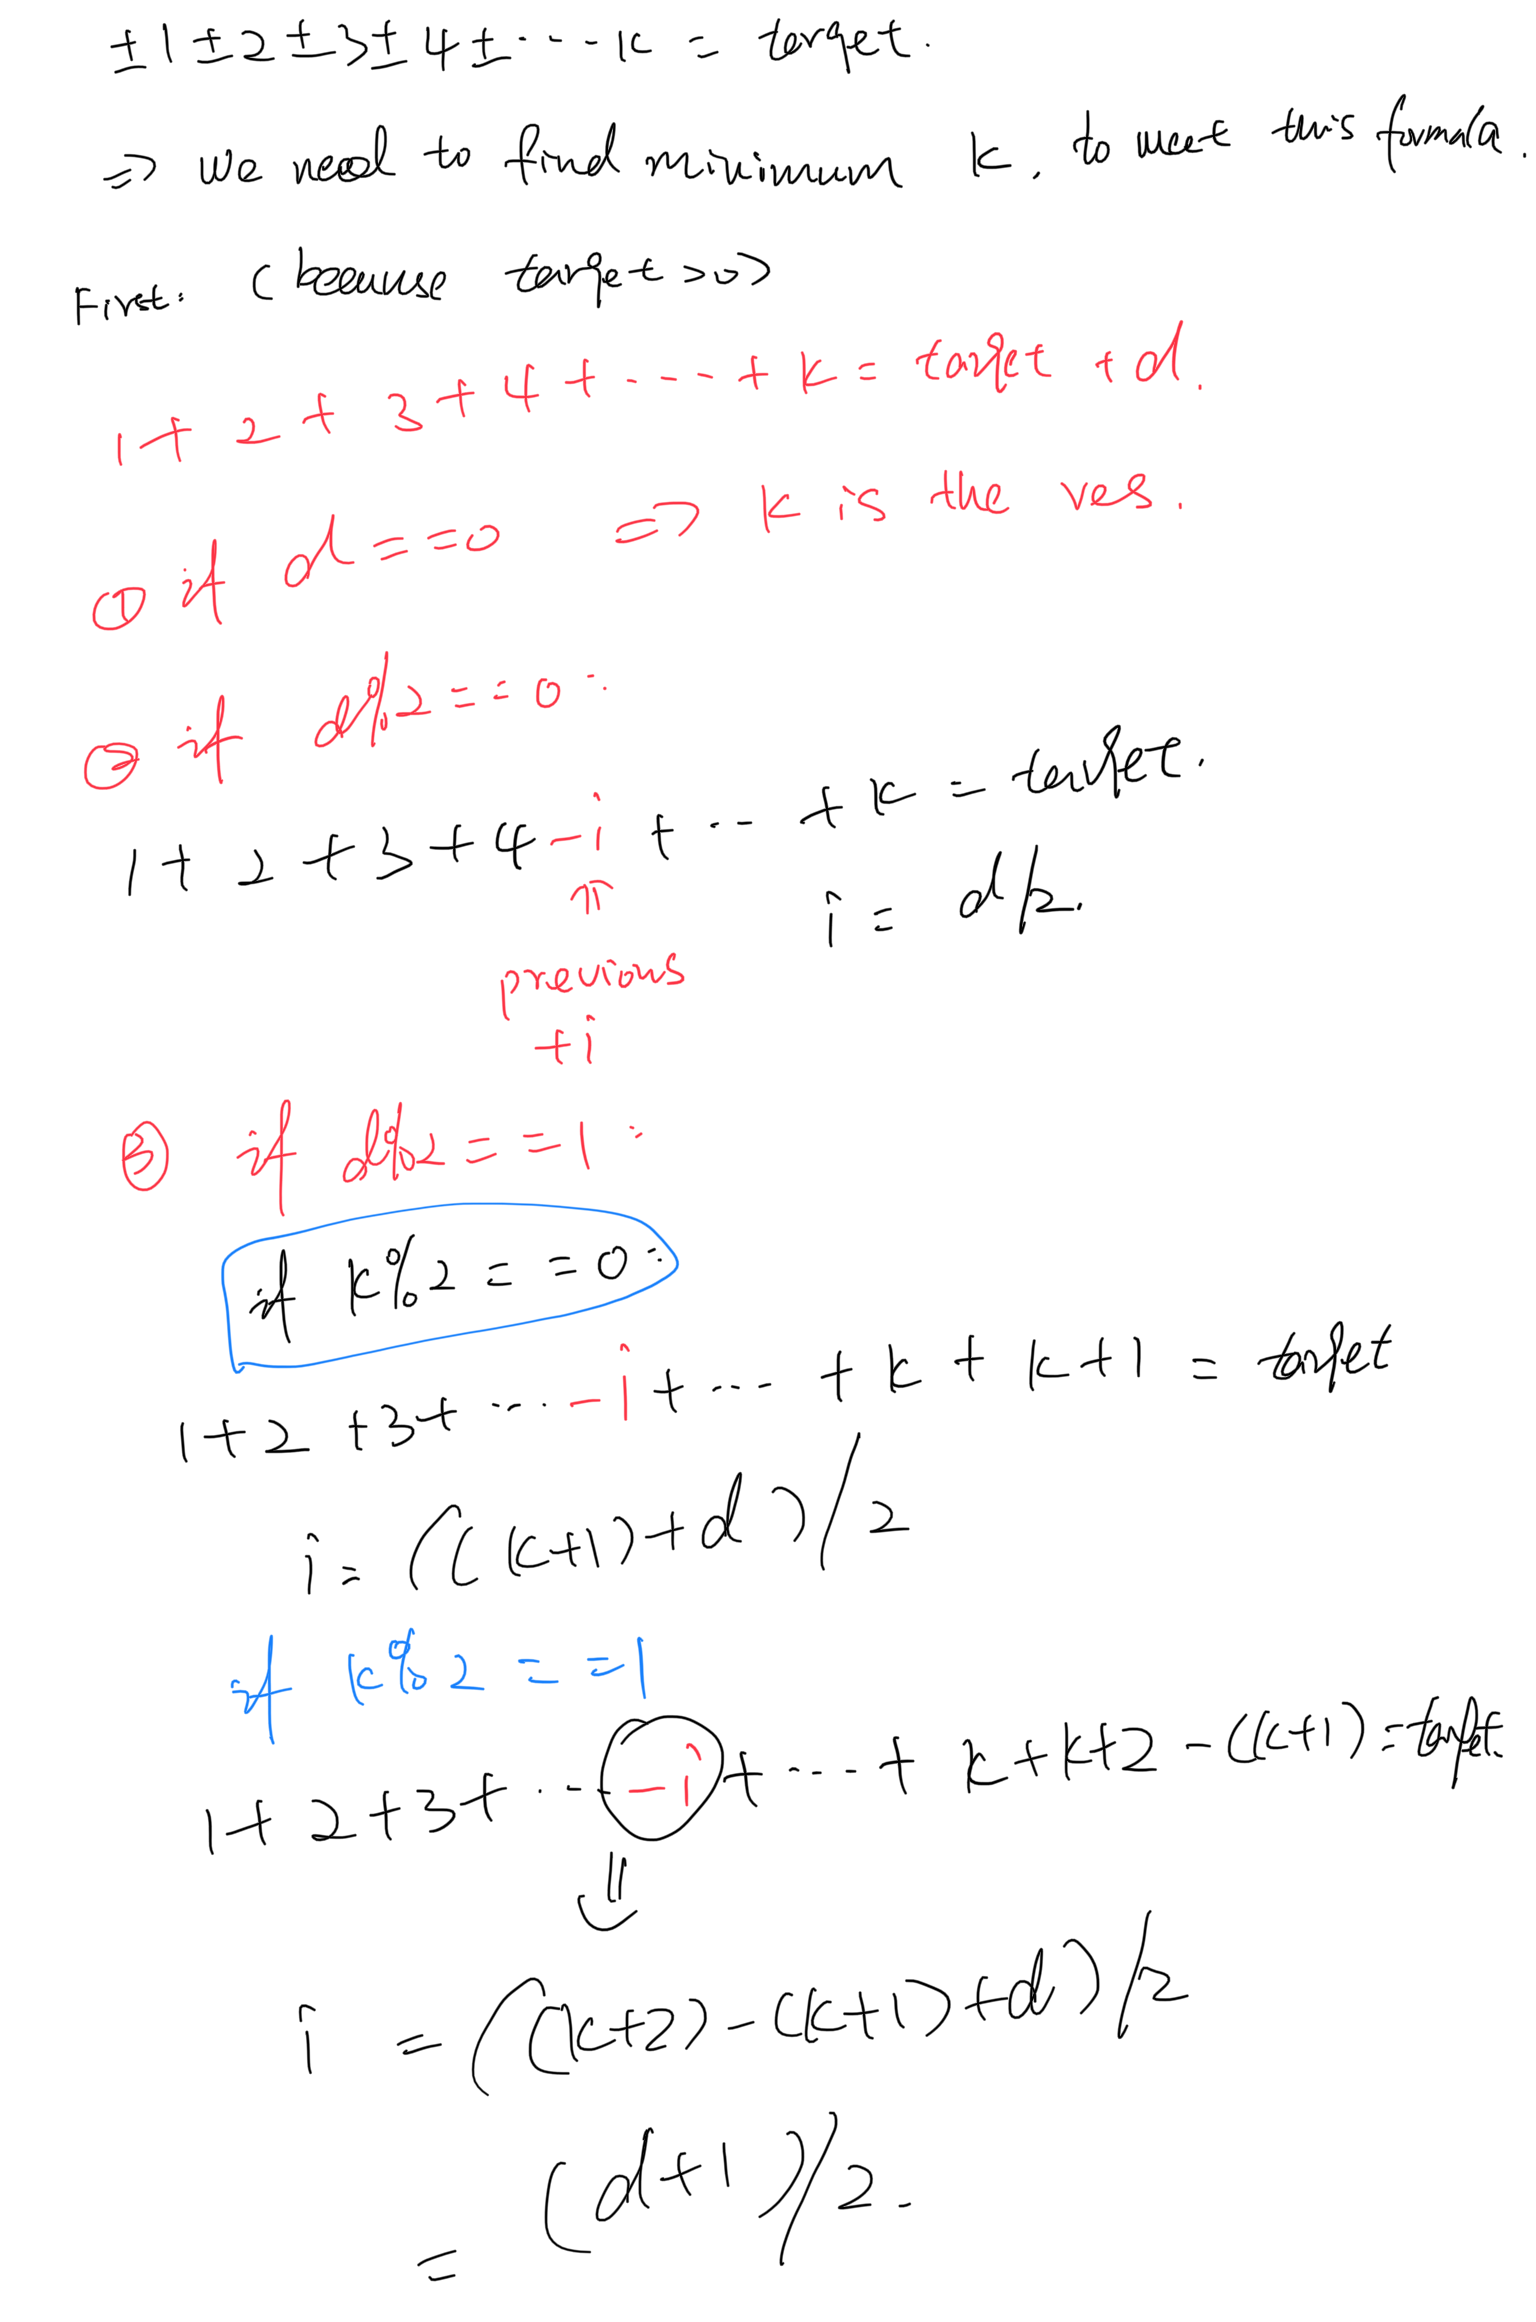 ±1±2±3±4±...k = target.
⇒ we need to find minimum k, to meet this formula.
First: (because target >0)
1+2+3+4+...+k = target + d.
① if d==0 ⇒ k is the res.
② if d%2==0:
1+2+3+4-i+...+k = target.
⇑
i = d/2.
previous
+i
③ if d%2==1:
if k%2==0:
1+2+3+...-i+...+k+k+1 = target
i = ((k+1)+d)/2
if k%2==1
1+2+3+...-i+...+k+k+2-(k+1)=target.
⇓
i = ((k+2)-(k+1)+d)/2
= (d+1)/2.